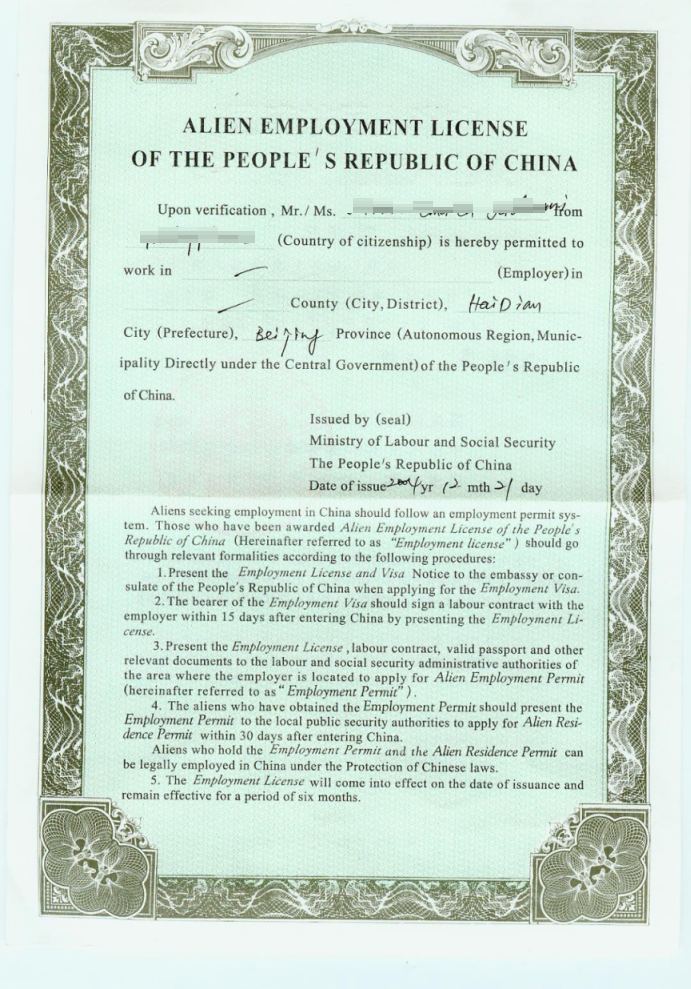 ALIEN EMPLOYMENT LICENSE
OF THE PEOPLE'S REPUBLIC OF CHINA
Upon verification, Mr./Ms. from
(Country of citizenship) is hereby permitted to
work in — (Employer) in
— County (City, District), HaiDian
City (Prefecture), Beijing Province (Autonomous Region, Munic-
ipality Directly under the Central Government) of the People's Republic
of China.
Issued by (seal)
Ministry of Labour and Social Security
The People's Republic of China
Date of issue 2004 yr 12 mth 21 day
Aliens seeking employment in China should follow an employment permit sys-
tem. Those who have been awarded Alien Employment License of the People's
Republic of China (Hereinafter referred to as "Employment license") should go
through relevant formalities according to the following procedures:
1. Present the Employment License and Visa Notice to the embassy or con-
sulate of the People's Republic of China when applying for the Employment Visa.
2. The bearer of the Employment Visa should sign a labour contract with the
employer within 15 days after entering China by presenting the Employment Li-
cense.
3. Present the Employment License, labour contract, valid passport and other
relevant documents to the labour and social security administrative authorities of
the area where the employer is located to apply for Alien Employment Permit
(hereinafter referred to as "Employment Permit").
4. The aliens who have obtained the Employment Permit should present the
Employment Permit to the local public security authorities to apply for Alien Resi-
dence Permit within 30 days after entering China.
Aliens who hold the Employment Permit and the Alien Residence Permit can
be legally employed in China under the Protection of Chinese laws.
5. The Employment License will come into effect on the date of issuance and
remain effective for a period of six months.